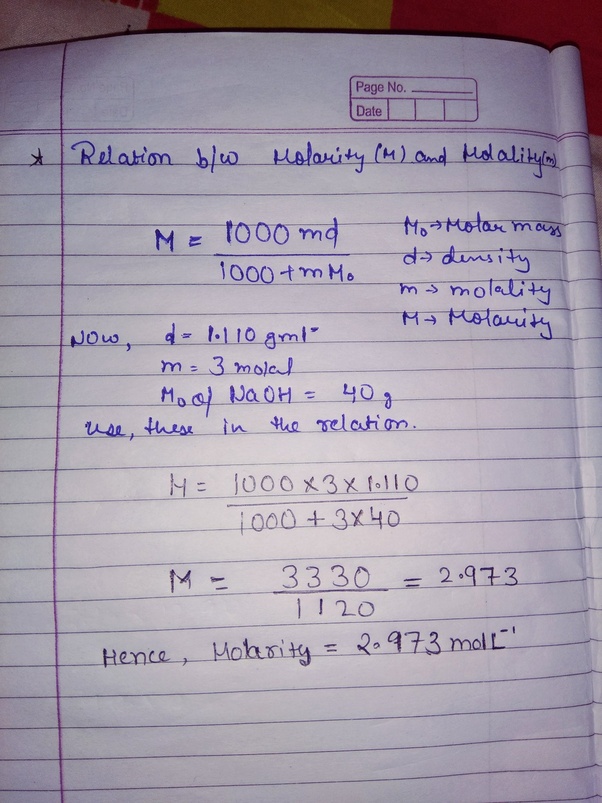 Page No.
Date
* Relation b/w Molarity (M) and Molality(m)
M = 1000 md / 1000 + mM₀
M₀→Molar mass
d→ density
m → molality
M→ Molarity
Now, d = 1.110 gml⁻
m = 3 molal
M₀ of NaOH = 40 g
Use, these in the relation.
M = 1000 × 3 × 1.110 / 1000 + 3×40
M = 3330 / 1120 = 2.973
Hence, Molarity = 2.973 mol L⁻¹